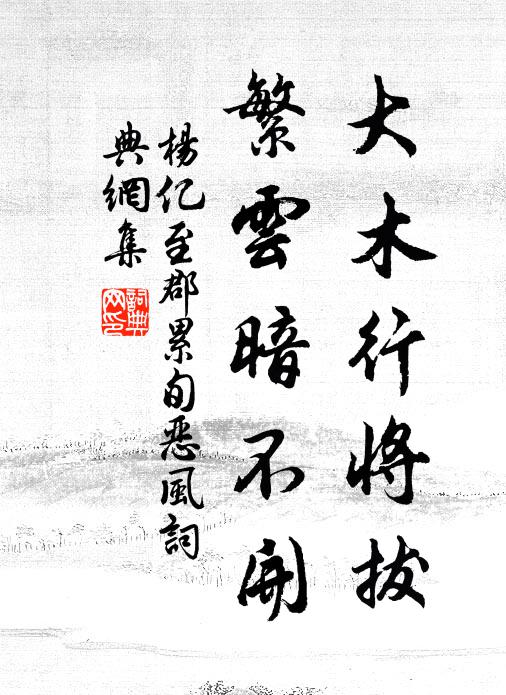 大木行将拔
繁雲暗不開
楊亿至郡累旬恶風詞
典網集
詞典
网印